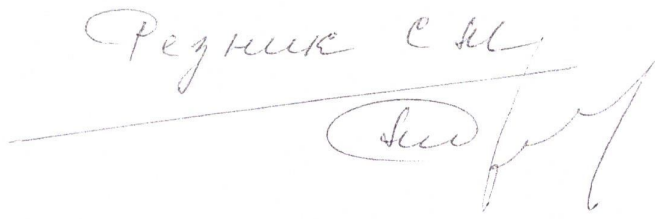 Резник С М